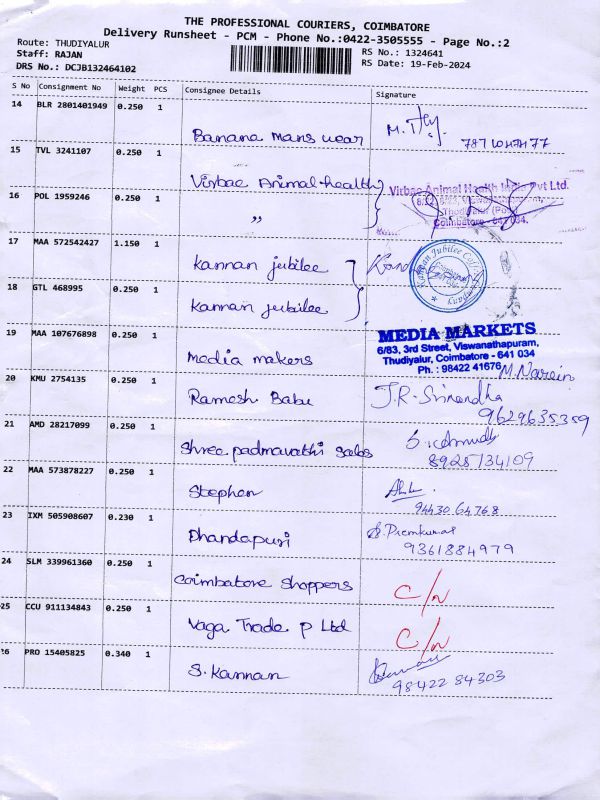 THE PROFESSIONAL COURIERS, COIMBATORE
Delivery Runsheet - PCM - Phone No.:0422-3505555 - Page No.:2
Route: THUDIYALUR
Staff: RAJAN
DRS No.: DCJB132464102
RS No.: 1324641
RS Date: 19-Feb-2024
S No Consignment No Weight PCS Consignee Details Signature
14 BLR 2801401949 0.250 1
Banana Mans wear M. 787
15 TVL 3241107 0.250 1
Virbac Animal-health
Virbac Animal Health India Pvt Ltd.
16 POL 1959246 0.250 1
"
Coimbatore - 641 034.
17 MAA 572542427 1.150 1
Kannan jubilee
Kannan Jubilee
18 GTL 468995 0.250 1
Kannan jubilee
19 MAA 107676898 0.250 1
Media makers
MEDIA MARKETS
6/83, 3rd Street, Viswanathapuram,
Thudiyalur, Coimbatore - 641 034
Ph. : 98422 41676
M. Narein
20 KMU 2754135 0.250 1
Ramesh Babu J.R. Srinandha
9629635359
21 AMD 28217099 0.250 1
Shree padmavathi sales
8925134109
22 MAA 573878227 0.250 1
Stephen
94430 64768
23 IXM 505908607 0.230 1
Dhandapuri S. Premkumar
9361884979
24 SLM 339961360 0.250 1
Coimbatore Shoppers C/N
25 CCU 911134843 0.250 1
Vaga Trade p Ltd C/N
26 PRO 15405825 0.340 1
S. Kannan
98422 84303